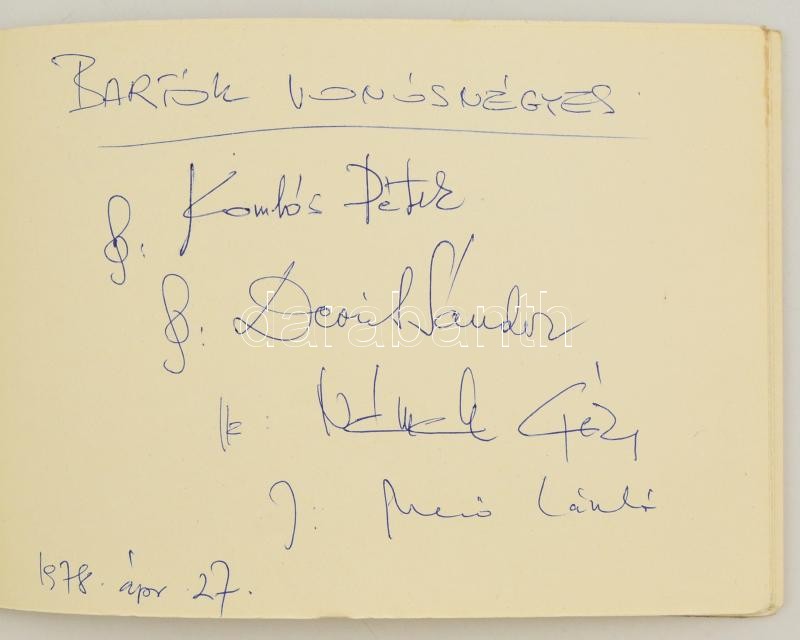 BARTÓK VONÓSNÉGYES
Komlós Péter
Devich Sándor
Németh Géza
Mező László
1978. ápr 27.
darabanth